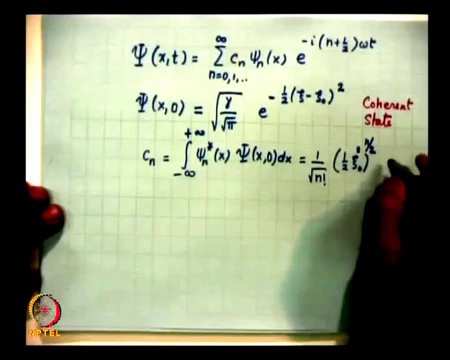 Ψ(x,t) = ∑_{n=0,1,..}^{∞} c_n ψ_n(x) e^{-i(n+½)ωt}
Ψ(x,0) = √(γ/√π) e^{-½(ξ-ξ₀)²}
Coherent State
c_n = ∫_{-∞}^{+∞} ψ_n*(x) Ψ(x,0)dx = 1/√n! (½ ξ₀)^{n/2}
NPTEL